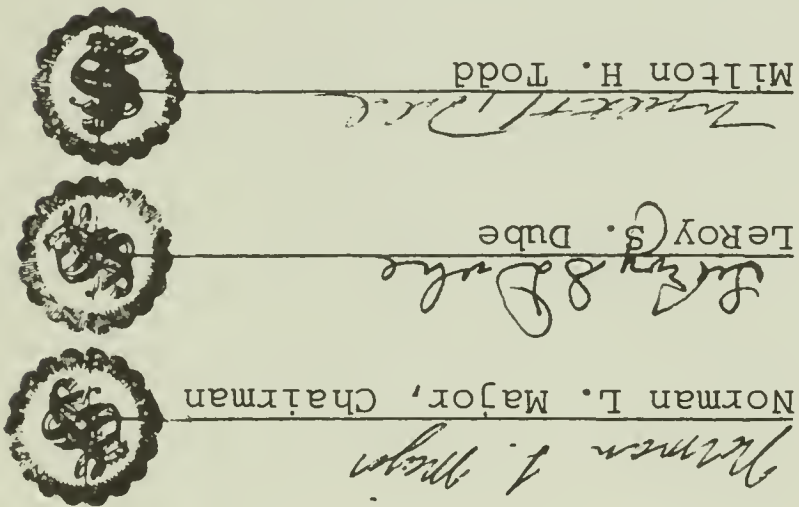 Norman L. Major
Norman L. Major, Chairman
LeRoy S Dube
LeRoy S. Dube
Milton H. Todd